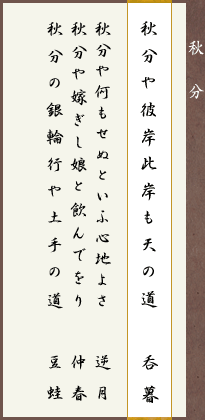 秋分
秋分や彼岸此岸も天の道　呑暮
秋分や何もせぬといふ心地よさ　逆月
秋分や嫁ぎし娘と飲んでをり　仲春
秋分の銀輪行や土手の道　豆蛙